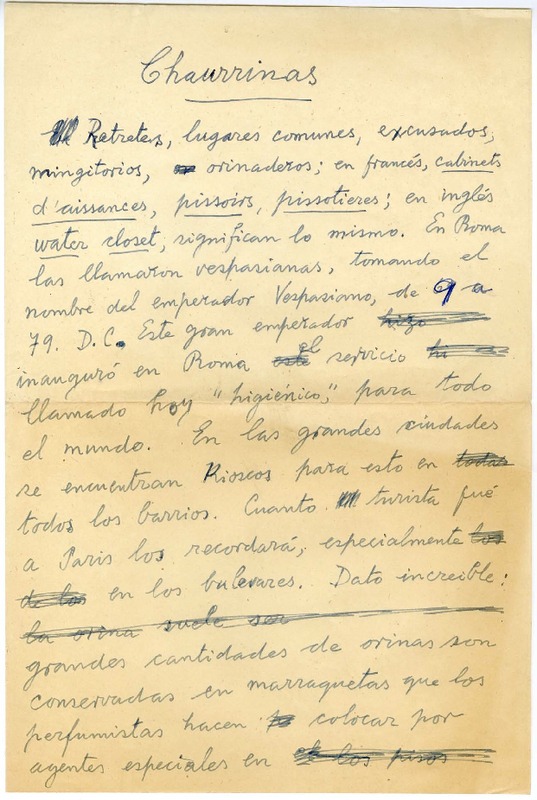 Chaurrinas
Retretes, lugares comunes, excusados,
mingitorios, orinaderos; en francés, cabinets
d'aissances, pissoirs, pissotieres; en inglés
water closet, significan lo mismo. En Roma
las llamaron vespasianas, tomando el
nombre del emperador Vespasiano, de 9 a
79. D.C. Este gran emperador hizo
inauguró en Roma este el servicio hi
llamado hoy "higiénico," para todo
el mundo. En las grandes ciudades
se encuentran Kioscos para esto en todas
todos los barrios. Cuanto turista fué
a Paris los recordará, especialmente los
de los en los bulevares. Dato increible:
la orina suele ser
grandes cantidades de orinas son
conservadas en marraquetas que los
perfumistas hacen colocar por
agentes especiales en el los pisos